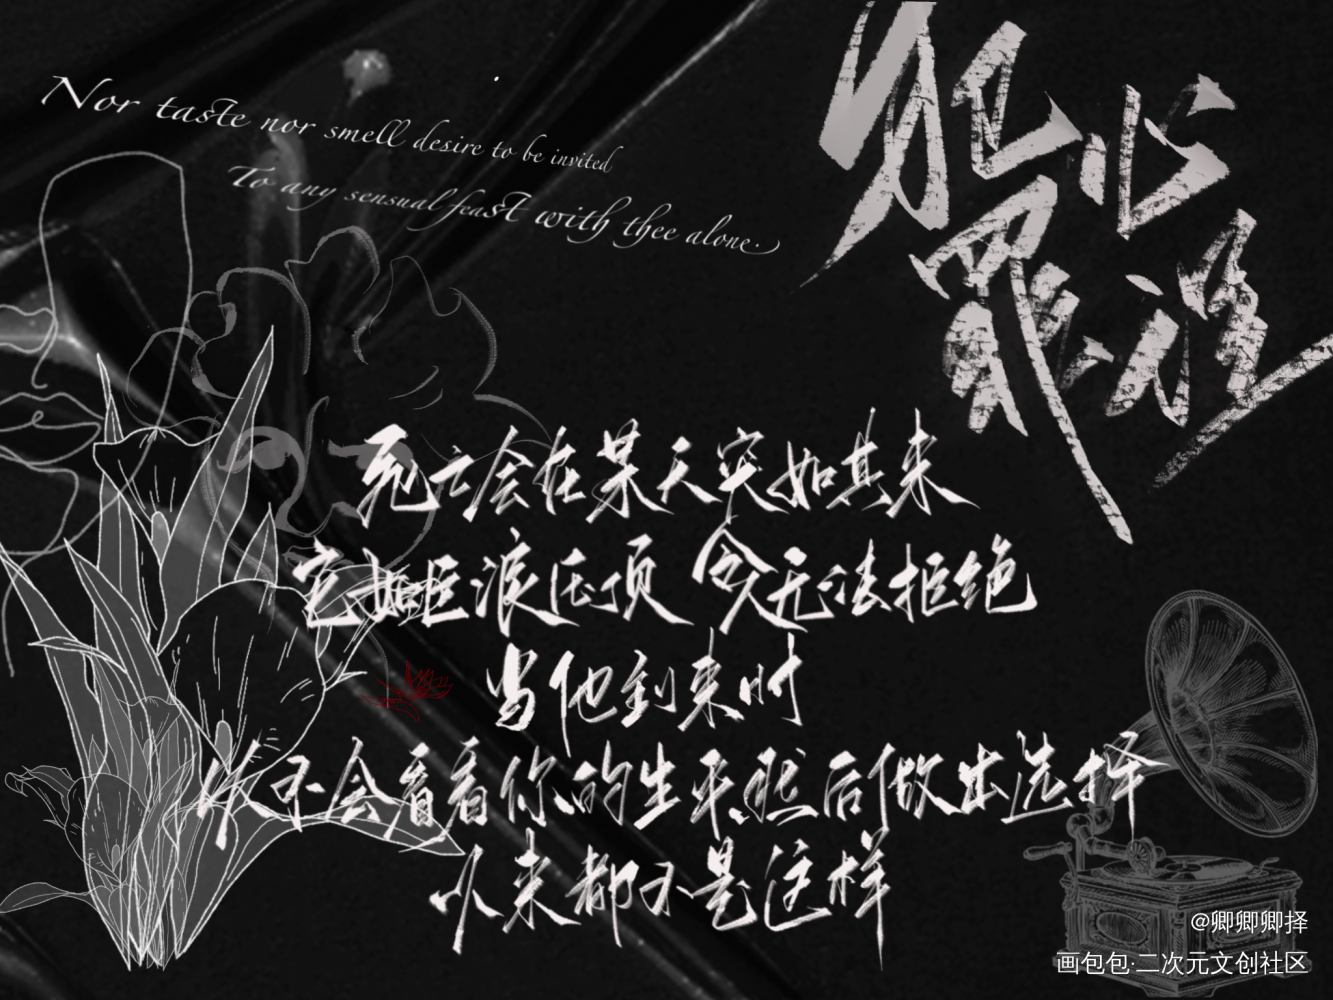 Nor taste nor smell desire to be invited
To any sensual feast with thee alone.
犯心
罪理
死亡会在某天突如其来
它如巨浪压顶 令无法拒绝
当他到来时
你不会看看你的生平然后做出选择
从来都不是这样
@卿卿卿择
画包包·二次元文创社区